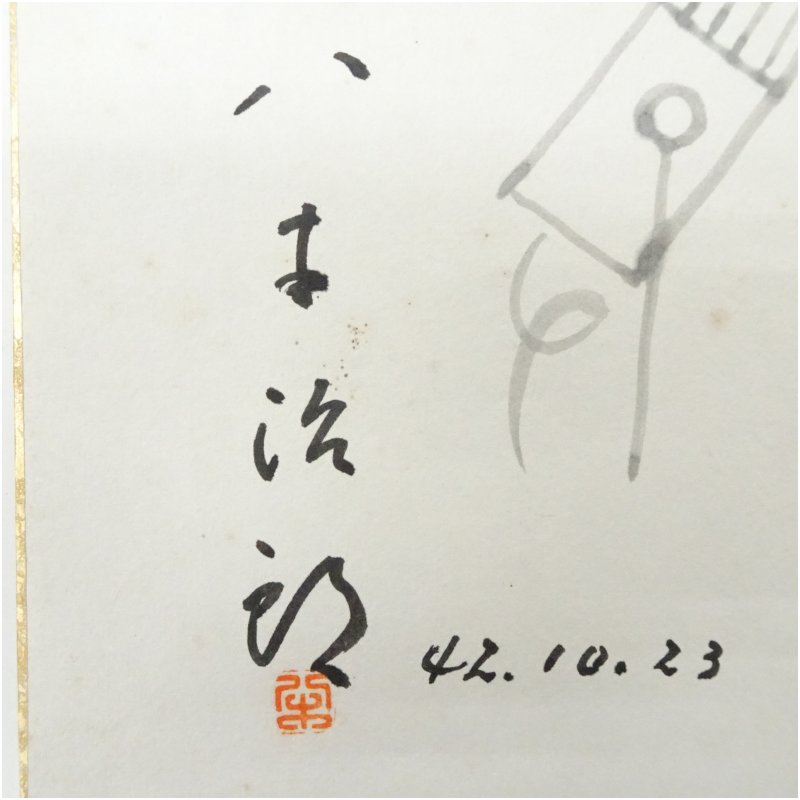 八木治郎
42.10.23